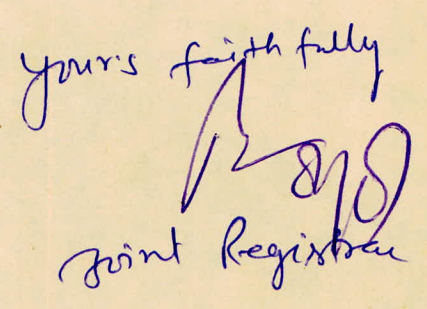 your's faithfully
Joint Registrar